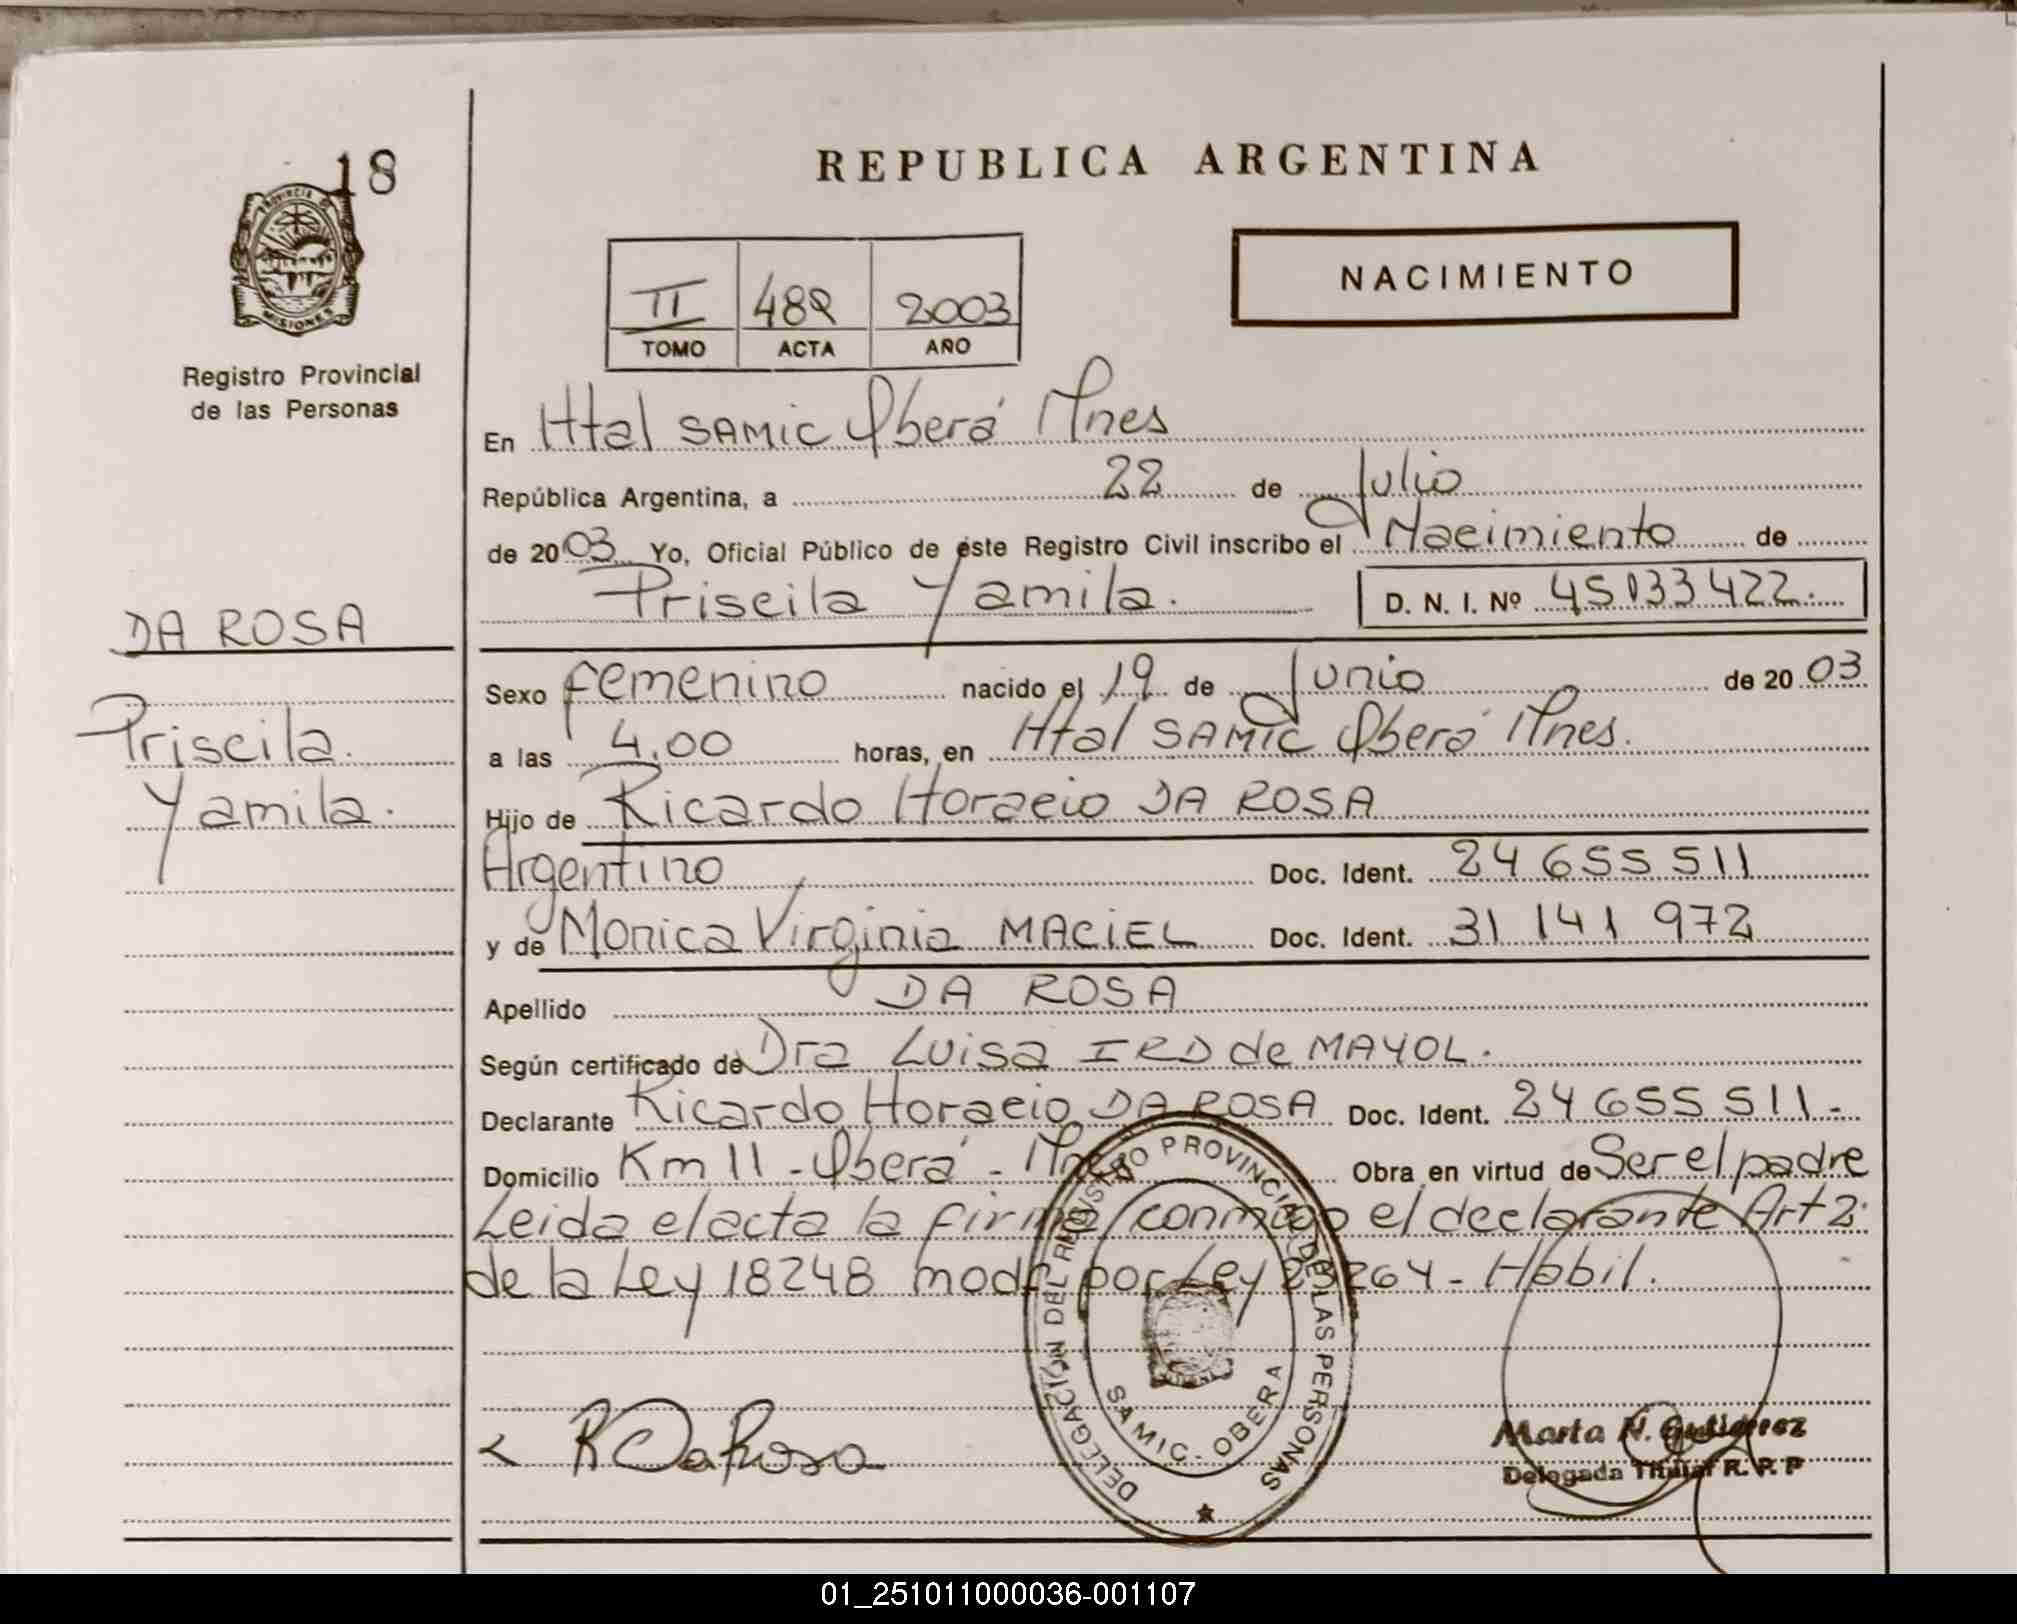 18
PROVINCIA DE
MISIONES
Registro Provincial
de las Personas
DA ROSA
Priscila
Yamila.
REPUBLICA ARGENTINA
NACIMIENTO
II 489 2003
TOMO ACTA AÑO
En Htal SAMIC Oberá Mnes
República Argentina, a 22 de Julio
de 2003 Yo, Oficial Público de éste Registro Civil inscribo el Nacimiento de
Priscila Yamila. D. N. I. Nº 45133422.
Sexo femenino nacido el 19 de Junio de 2003
a las 4.00 horas, en Htal SAMIC Oberá Mnes.
Hijo de Ricardo Horacio DA ROSA
Argentino Doc. Ident. 24 655 511
y de Monica Virginia MACIEL Doc. Ident. 31 141 972
Apellido DA ROSA
Según certificado de Dra Luisa IRD de MAYOL.
Declarante Ricardo Horacio DA ROSA Doc. Ident. 24 655 511-
Domicilio Km 11 - Oberá - Mnes Obra en virtud de Ser el padre
Leida el acta la firma conmigo el declarante Art 2:
de la Ley 18248 modf por Ley 23264 - Habil.
DELEGACIÓN DEL REGISTRO PROVINCIAL DE LAS PERSONAS
SAMIC - OBERA
R Da Rosa
Marta N. Gutierrez
Delegada Titular R. P. P
01_251011000036-001107